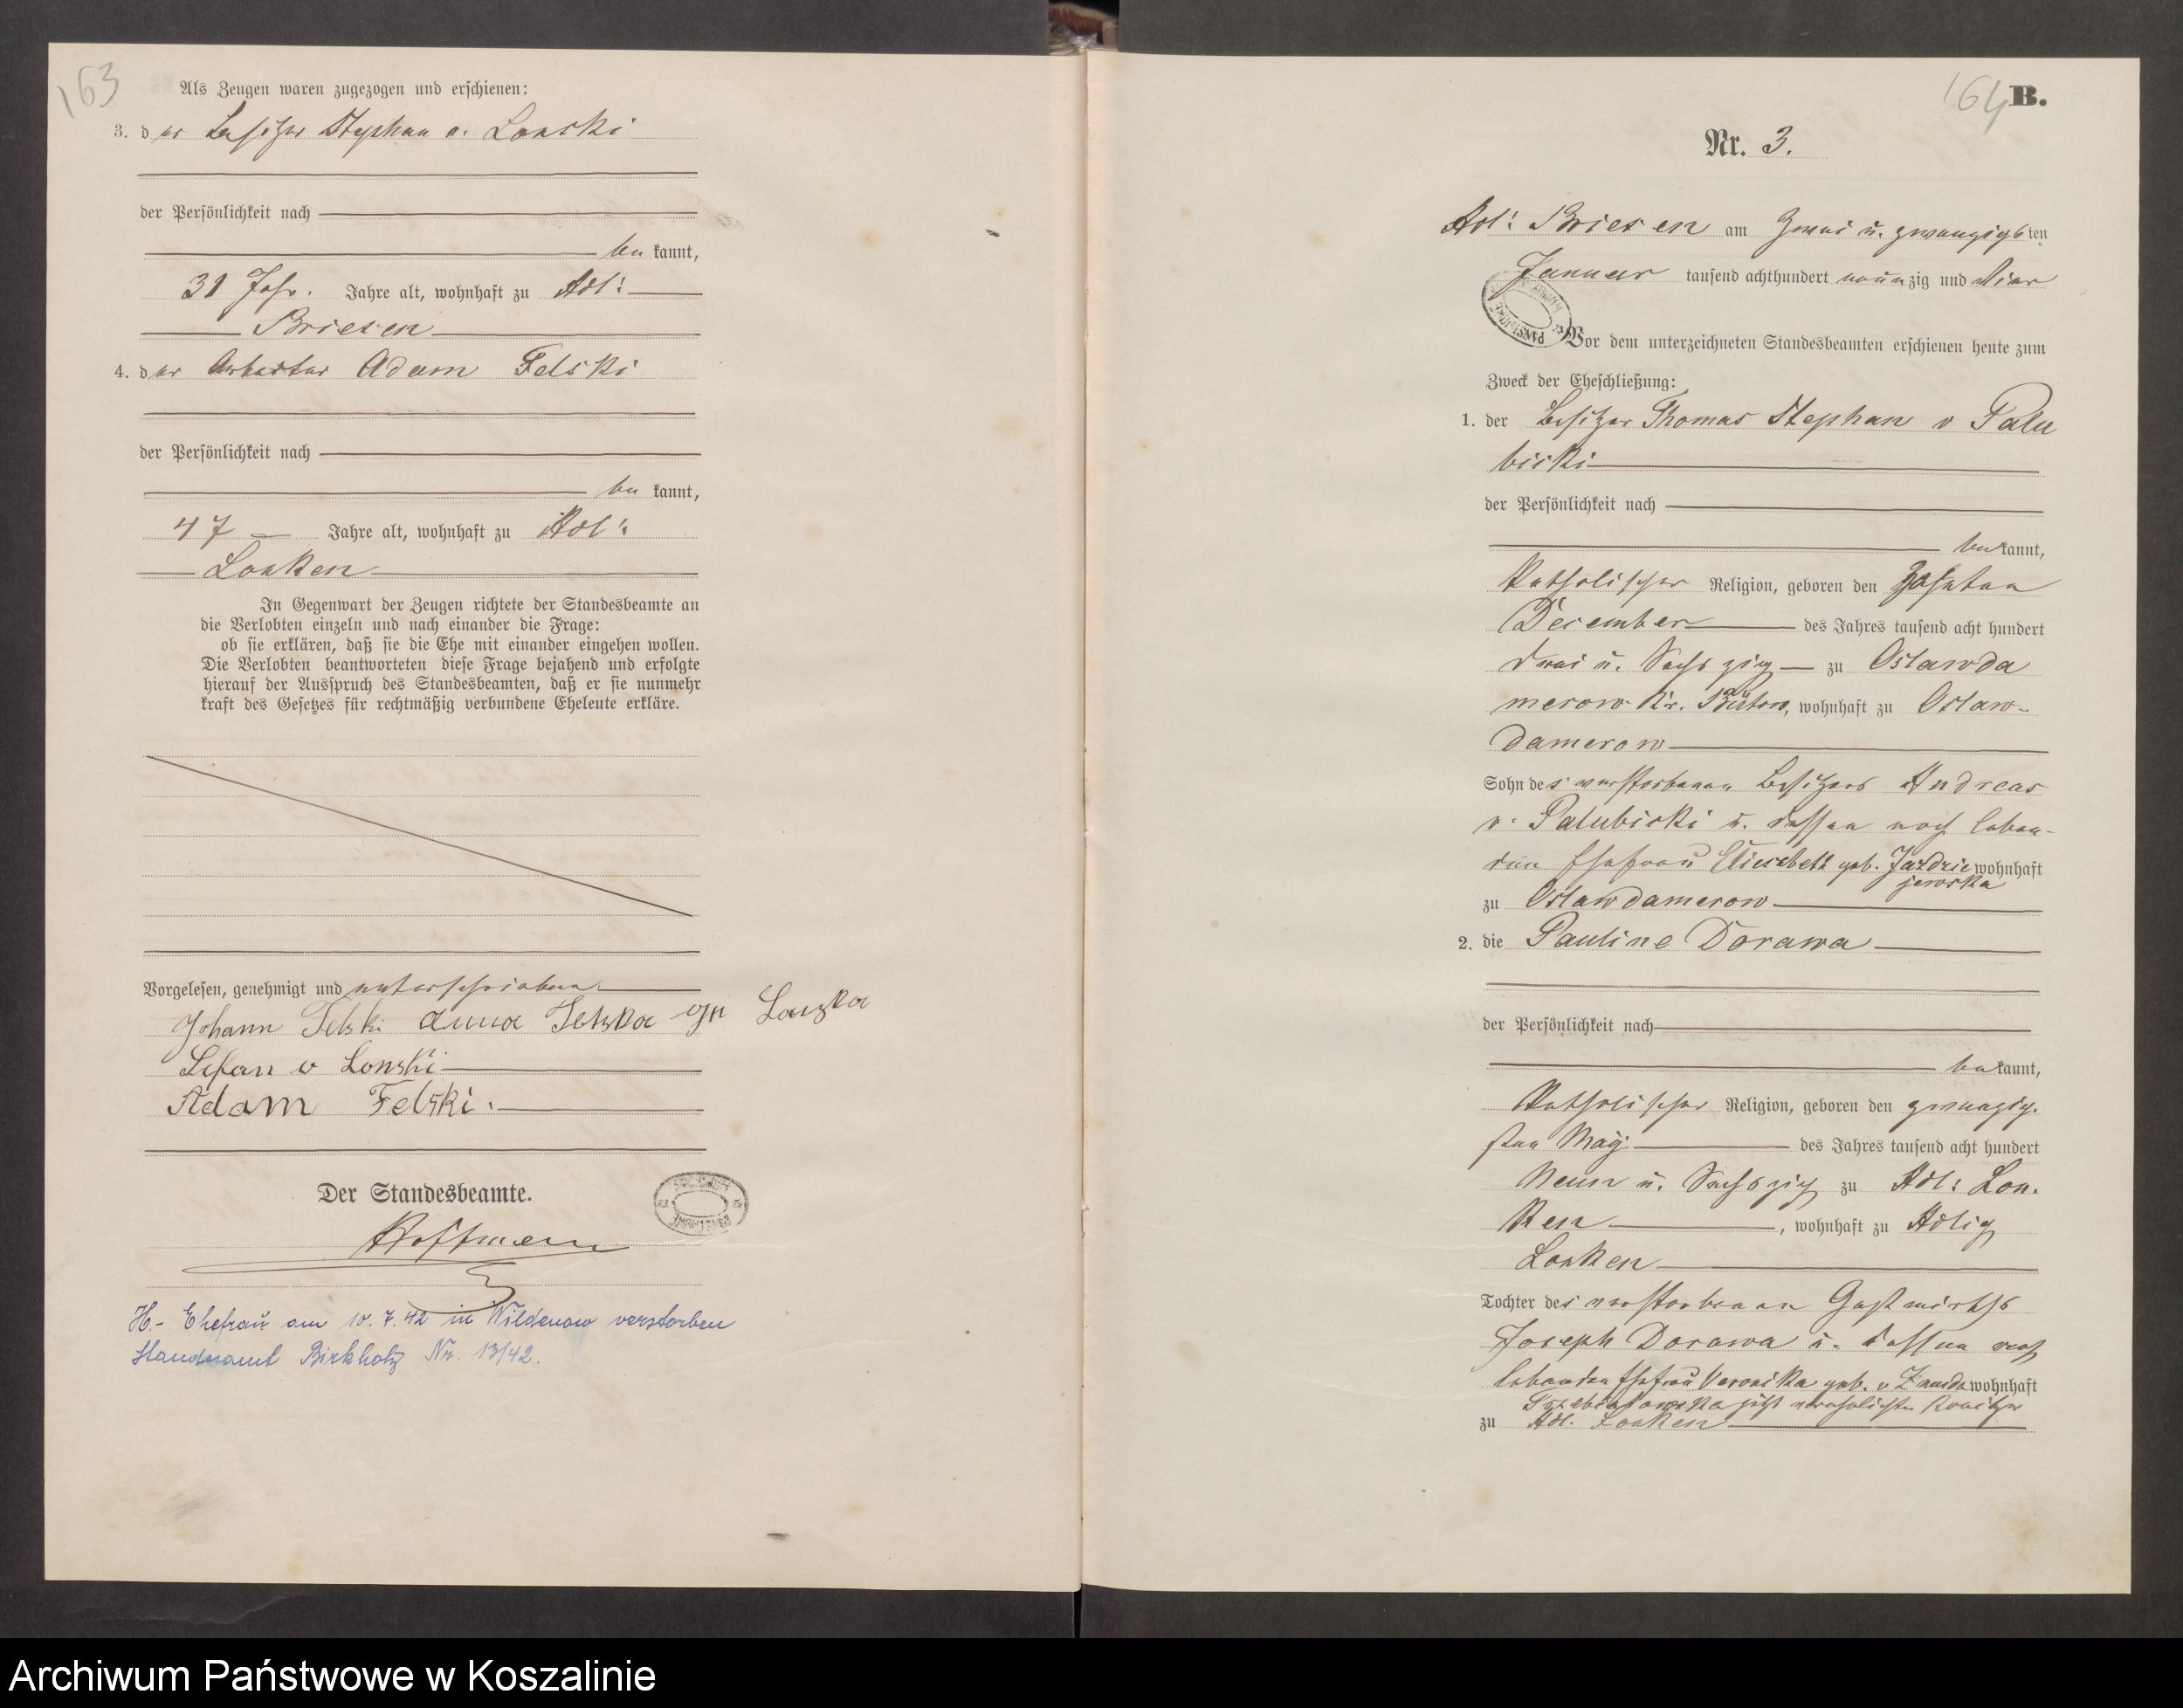 163
Als Zeugen waren zugezogen und erschienen:
3. der Besitzer Stephan v. Lonski
der Persönlichkeit nach
be kannt,
31 Jahr. Jahre alt, wohnhaft zu Adl:
Briesen
4. der Arbeiter Adam Felski
der Persönlichkeit nach
be kannt,
47 Jahre alt, wohnhaft zu Adl:
Lonken
In Gegenwart der Zeugen richtete der Standesbeamte an
die Verlobten einzeln und nach einander die Frage:
ob sie erklären, daß sie die Ehe mit einander eingehen wollen.
Die Verlobten beantworteten diese Frage bejahend und erfolgte
hierauf der Ausspruch des Standesbeamten, daß er sie nunmehr
kraft des Gesetzes für rechtmäßig verbundene Eheleute erkläre.
Vorgelesen, genehmigt und unterschrieben
Johann Felski Anna Felska
Stefan v Lonski
Adam Felski.
Der Standesbeamte.
Hoffmann
H.- Ehefrau am 10. 7. 42 in Wildenow verstorben
Standesamt Birkholz Nr. 13/42.
164 B.
Nr. 3.
Adl: Briesen am Zwei u. zwanzigsten
Januar tausend achthundert neunzig und vier
Vor dem unterzeichneten Standesbeamten erschienen heute zum
Zweck der Eheschließung:
1. der Besitzer Thomas Stephan v Palu
bicki
der Persönlichkeit nach
be kannt,
Katholischer Religion, geboren den Zehnten
December des Jahres tausend acht hundert
drei u. Sechszig zu Oslawda
merow Kr. Bütow, wohnhaft zu Oslaw-
damerow
Sohn des verstorbenen Besitzers Andreas
v. Palubicki u. dessen noch leben-
den Ehefrau geb. wohnhaft
zu Oslawdamerow
2. die Pauline Dorawa
der Persönlichkeit nach
be kannt,
Katholischer Religion, geboren den zwanzig-
sten Mai des Jahres tausend acht hundert
Neun u. Sechszig zu Adl: Lon-
ken, wohnhaft zu Adlig
Lonken
Tochter des verstorbenen Gastwirths
Joseph Dorawa u. dessen noch
lebenden Ehefrau Veronika geb. v wohnhaft
jetzt verehelichte
zu Adl. Lonken
Archiwum Państwowe w Koszalinie